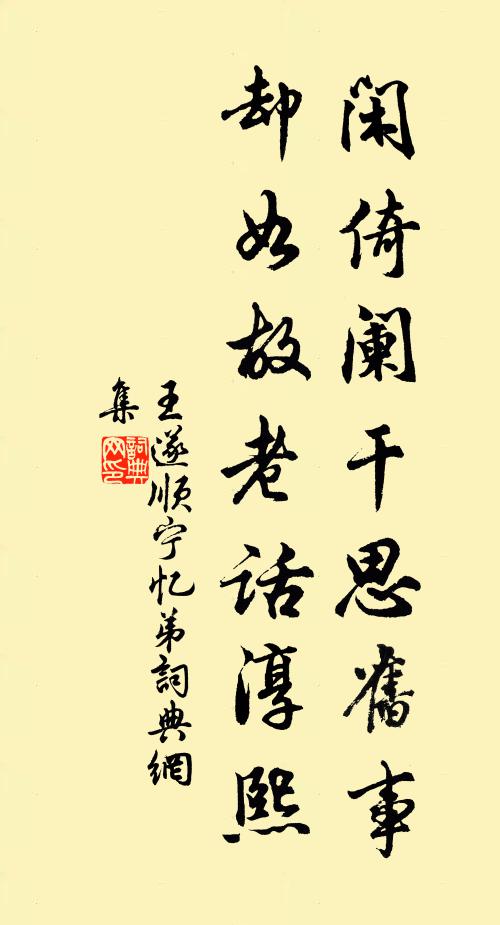 闲倚阑干思舊事
却如故老话淳熙
王遂顺宁忆弟詞典網
集
詞典网印